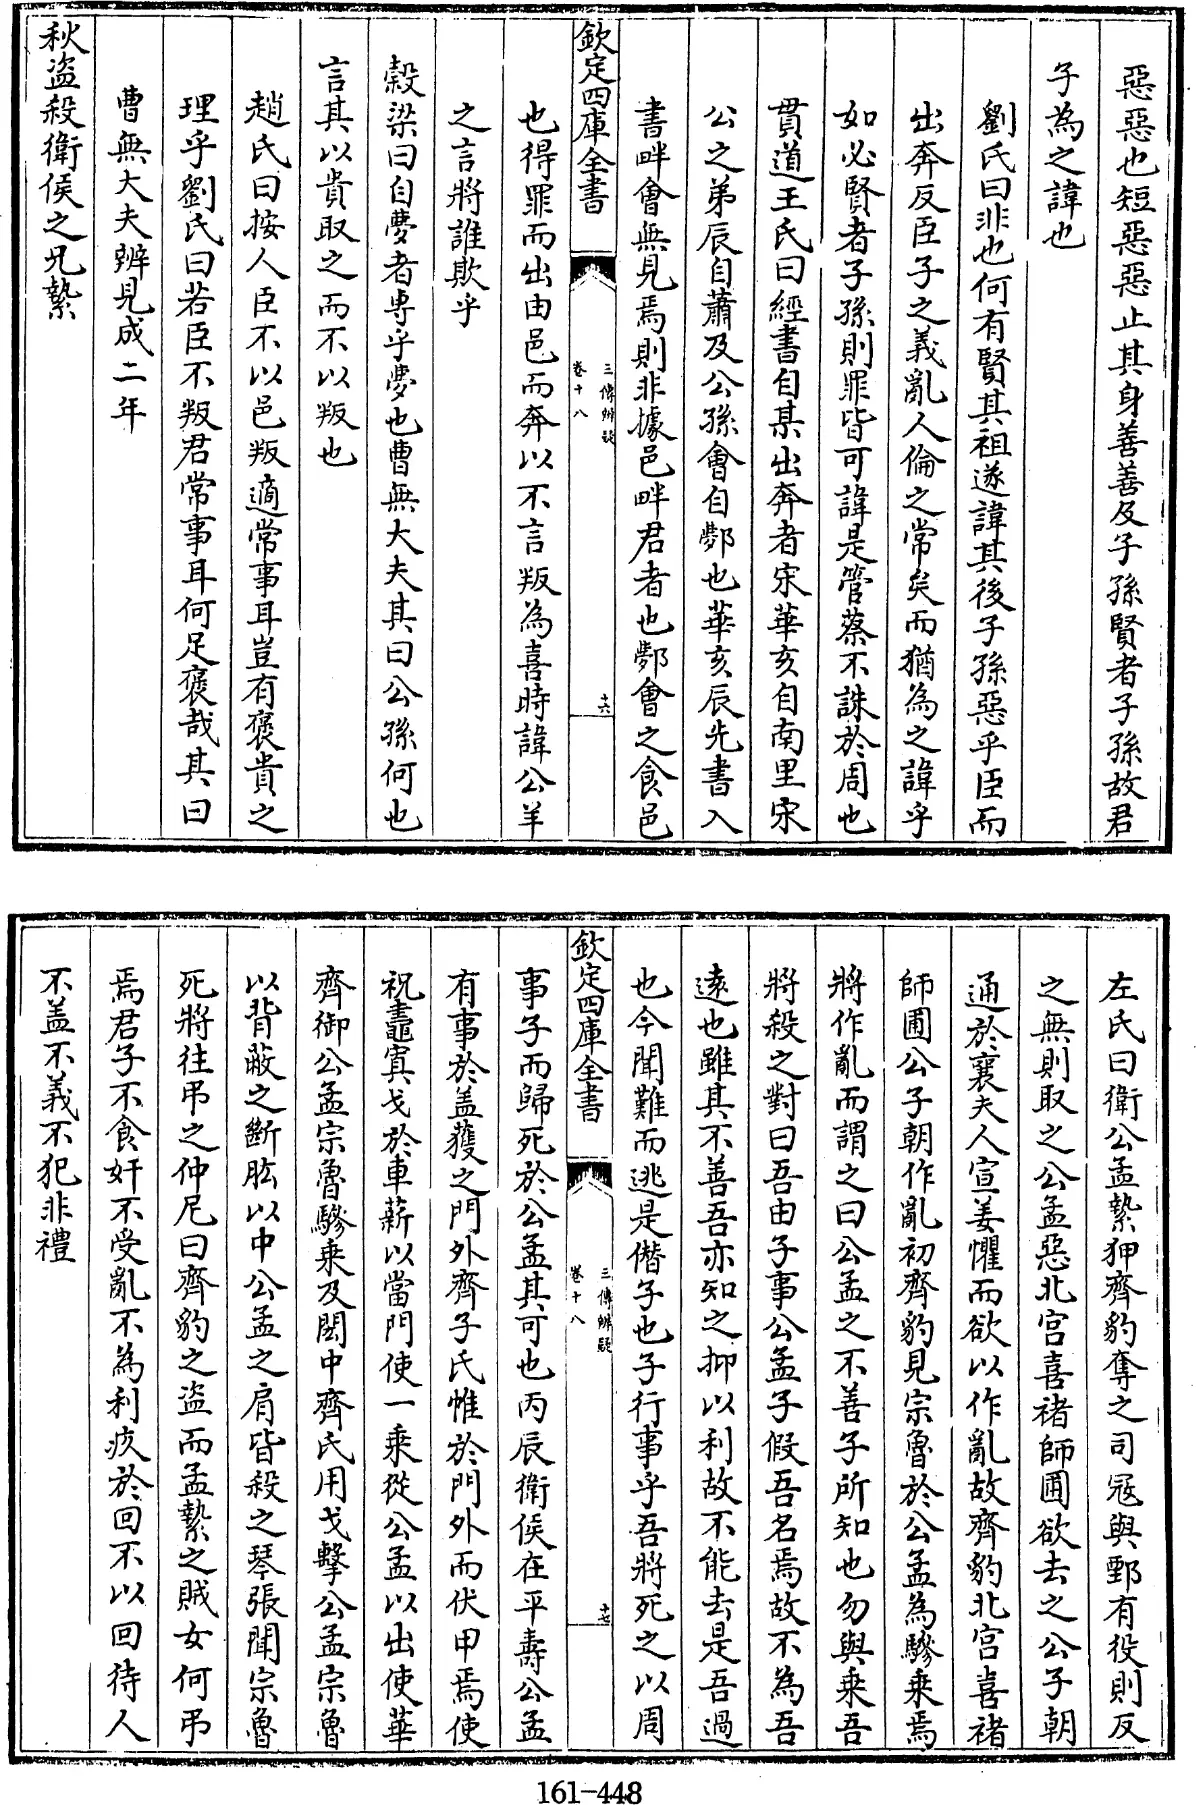 惡惡也短惡惡止其身善善及子孫賢者子孫故君
子為之諱也
劉氏曰非也何有賢其祖遂諱其後子孫惡乎臣而
出奔反臣子之義亂人倫之常矣而猶為之諱乎
如必賢者子孫則罪皆可諱是管蔡不誅於周也
貫道王氏曰經書自某出奔者宋華亥自南里宋
公之弟辰自蕭及公孫會自鄸也華亥辰先書入
書畔會無見焉則非據邑畔君者也鄸會之食邑
欽定四庫全書
三傳辨疑
卷十八
十六
也得罪而出由邑而奔以不言叛為喜時諱公羊
之言將誰欺乎
穀梁曰自夢者専乎夢也曹無大夫其曰公孫何也
言其以貴取之而不以叛也
趙氏曰按人臣不以邑叛適常事耳豈有褒貴之
理乎劉氏曰若臣不叛君常事耳何足褒哉其曰
曹無大夫辨見成二年
秋盗殺衛侯之兄縶
左氏曰衛公孟縶狎齊豹奪之司冦與鄄有役則反
之無則取之公孟惡北宫喜禇師圃欲去之公子朝
通於襄夫人宣姜懼而欲以作亂故齊豹北宫喜禇
師圃公子朝作亂初齊豹見宗魯於公孟為驂乗焉
將作亂而謂之曰公孟之不善子所知也勿與乗吾
將殺之對曰吾由子事公孟子假吾名焉故不為吾
逺也雖其不善吾亦知之抑以利故不能去是吾過
也今聞難而逃是僣子也子行事乎吾將死之以周
欽定四庫全書
三傳辨疑
卷十八
十七
事子而歸死於公孟其可也丙辰衛侯在平壽公孟
有事於盖獲之門外齊子氏惟於門外而伏甲焉使
祝鼃寘戈於車薪以當門使一乗從公孟以出使華
齊御公孟宗魯驂乗及閎中齊氏用戈擊公孟宗魯
以背蔽之斷肱以中公孟之肩皆殺之琴張聞宗魯
死將往弔之仲尼曰齊豹之盗而孟縶之賊女何弔
焉君子不食奸不受亂不為利疚於回不以回待人
不盖不義不犯非禮
161-448